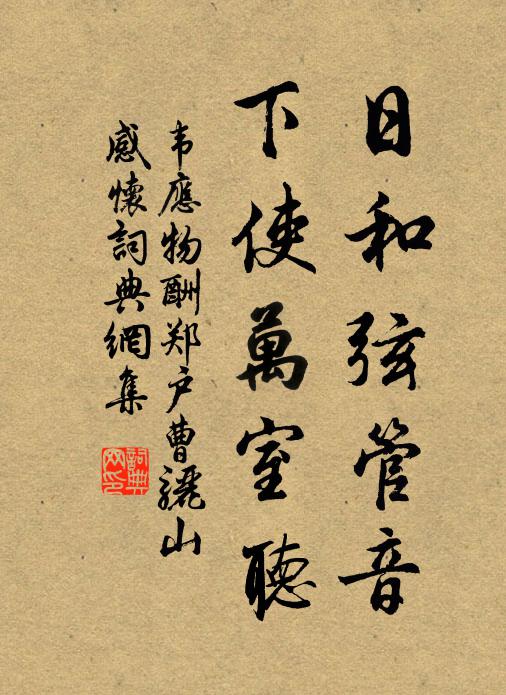 日和弦管音
下使萬室聽
韦應物酬郑户曹驪山
感懷詞典網集
詞典
网印